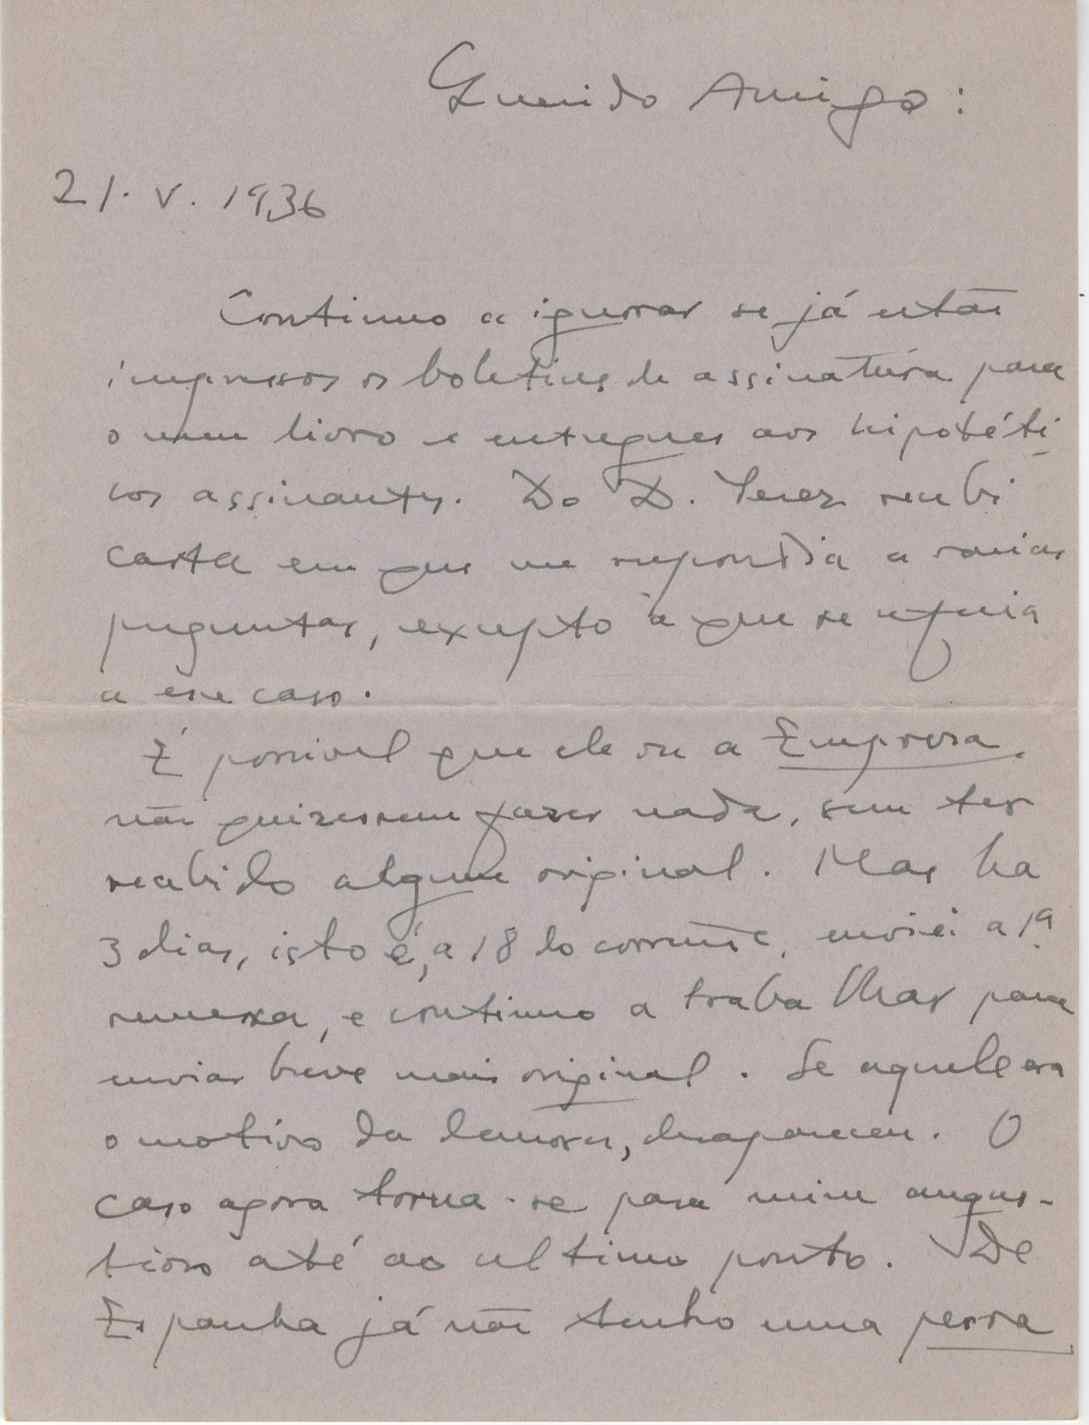 Querido Amigo:
21. V. 1936
Continuo a ignorar se já estão
impressos os boletins de assinatura para
o meu livro e entregues aos hipotéti
cos assinantes. Do D. Perez recebi
carta em que me respondia a varias
preguntas, excepto à que se referia
a esse caso.
É possivel que ele ou a Empresa
não quizessem fazer nada, sem ter
recebido algum original. Mas ha
3 dias, isto é, a 18 do corrente, enviei a 1ª
remessa, e continuo a trabalhar para
enviar breve mais original. Se aquele era
o motivo da demora, desapareceu. O
caso agora torna-se para mim angus-
tioso até ao ultimo ponto. De
Espanha já não tenho uma perra